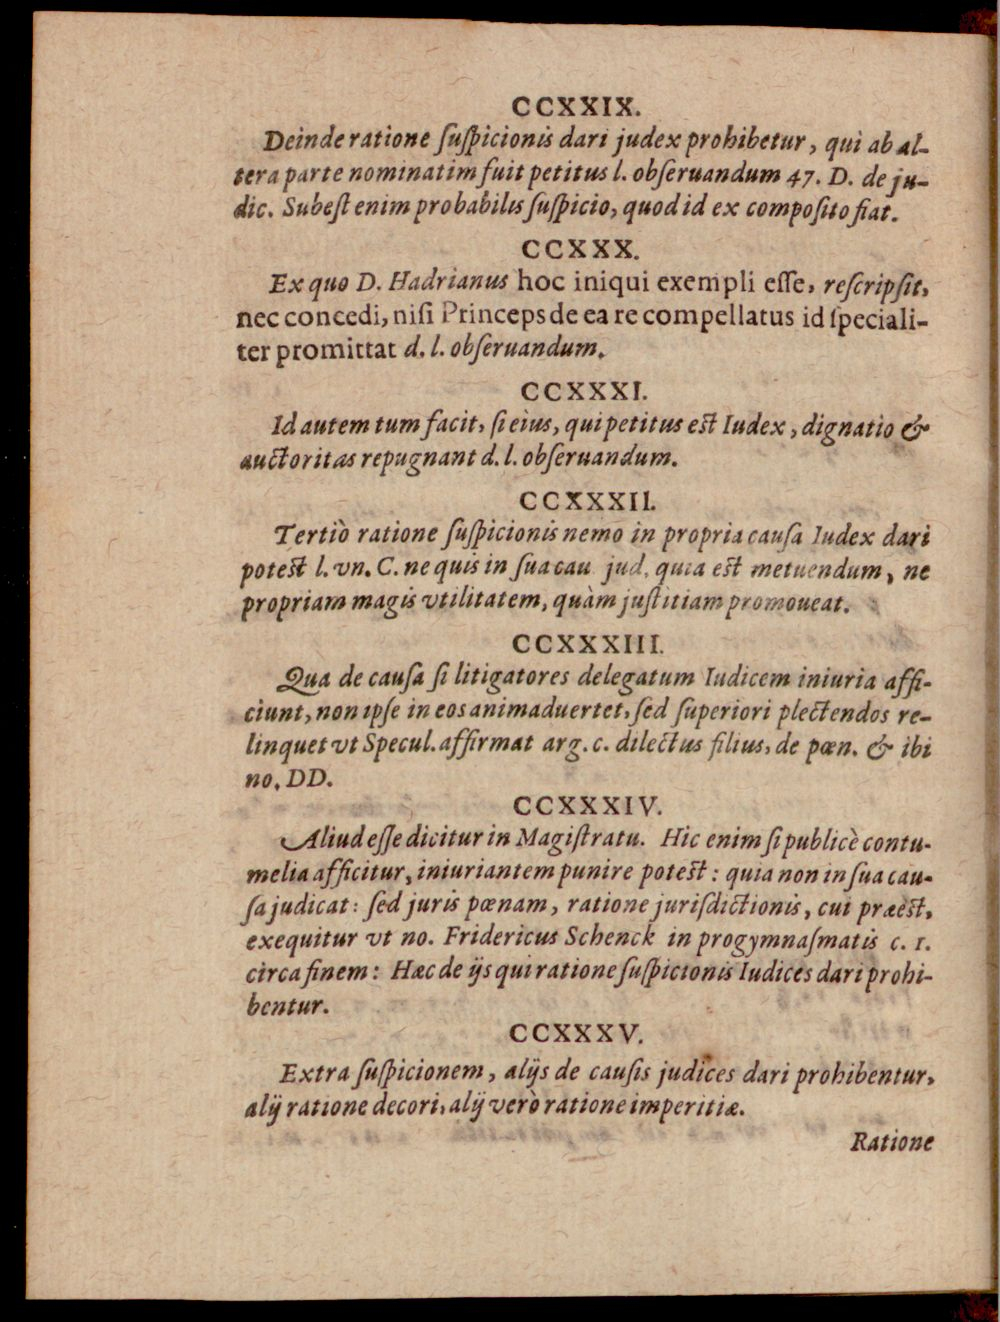 CCXXIX.
Deinde ratione ſuſpicionis dari judex prohibetur, qui ab al-
tera parte nominatim fuit petitus l. obſeruandum 47. D. de ju-
dic. Subeſt enim probabilis ſuſpicio, quod id ex compoſito fiat.
CCXXX.
Ex quo D. Hadrianus hoc iniqui exempli eſſe, reſcripſit,
nec concedi, niſi Princeps de ea re compellatus id ſpeciali-
ter promittat d. l. obſeruandum.
CCXXXI.
Id autem tum facit, ſi eius, qui petitus eſt Iudex, dignatio &
auctoritas repugnant d. l. obſeruandum.
CCXXXII.
Tertiò ratione ſuſpicionis nemo in propria cauſa Iudex dari
poteſt l. vn. C. ne quis in ſua cau jud. quia eſt metuendum, ne
propriam magis vtilitatem, quàm juſtitiam promoueat.
CCXXXIII.
Qua de cauſa ſi litigatores delegatum Iudicem iniuria affi-
ciunt, non ipſe in eos animaduertet, ſed ſuperiori plectendos re-
linquet vt Specul. affirmat arg. c. dilectus filius, de pœn. & ibi
no. DD.
CCXXXIV.
Aliud eſſe dicitur in Magiſtratu. Hic enim ſi publicè contu-
melia afficitur, iniuriantem punire poteſt: quia non in ſua cau-
ſa judicat: ſed juris pœnam, ratione juriſdictionis, cui præeſt,
exequitur vt no. Fridericus Schenck in progymnaſmatis c. 1.
circa finem: Hæc de ijs qui ratione ſuſpicionis Iudices dari prohi-
bentur.
CCXXXV.
Extra ſuſpicionem, alijs de cauſis judices dari prohibentur,
alij ratione decori, alij verò ratione imperitiæ.
Ratione